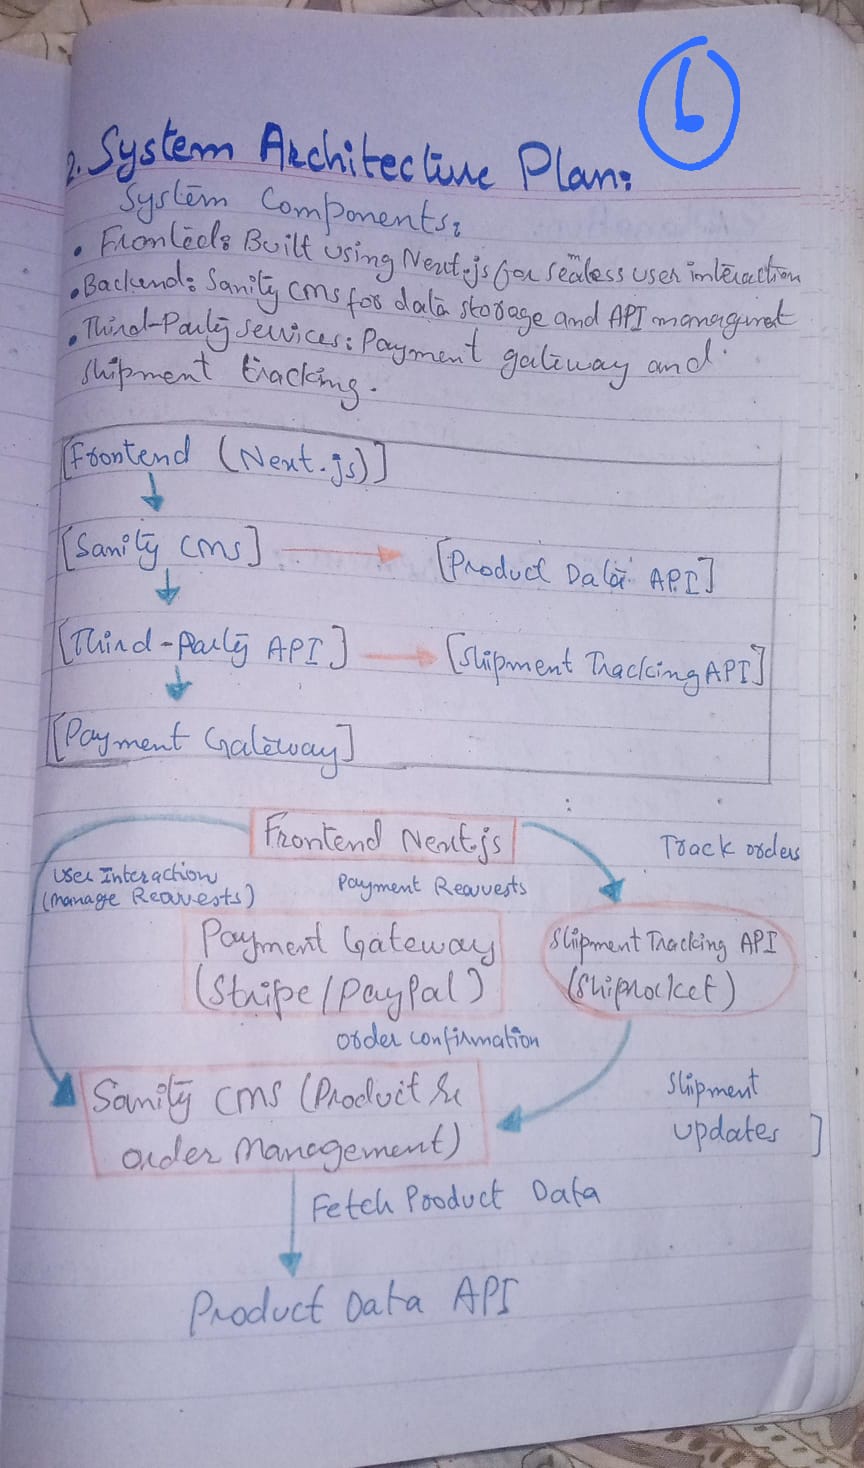 6
2. System Architecture Plan:
System Components:
• Fronted: Built using Next.js for sealess user interaction
m
• Backend: Sanity CMS for data storage and API managment
• Third-Party services: Payment gateway and
shipment tracking.
[Frontend (Next.js)]
[Sanity CMS] → [Product Data API]
[Third-Party API] → [Shipment Tracking API]
[Payment Gateway]
Frontend Next.js
Track orders
User Interaction
(manage Requests)
Payment Requests
Payment Gateway
(Stripe/PayPal)
Shipment Tracking API
(Shiprocket)
order confirmation
Sanity CMS (Product &
order Management)
Shipment
updates ]
Fetch Product Data
Product Data API